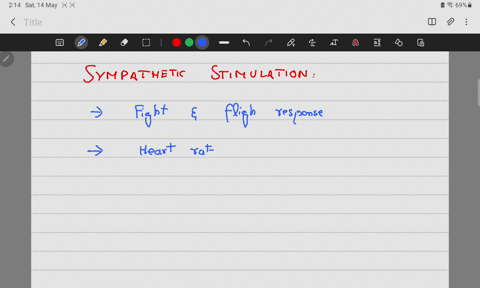 2:14 Sat, 14 May
69%
Title
SYMPATHETIC STIMULATION:
→ Fight & fligh response
→ Heart rat